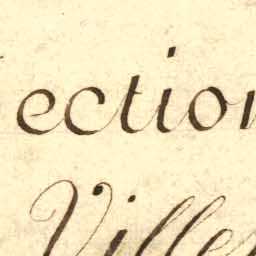 ection
Ville